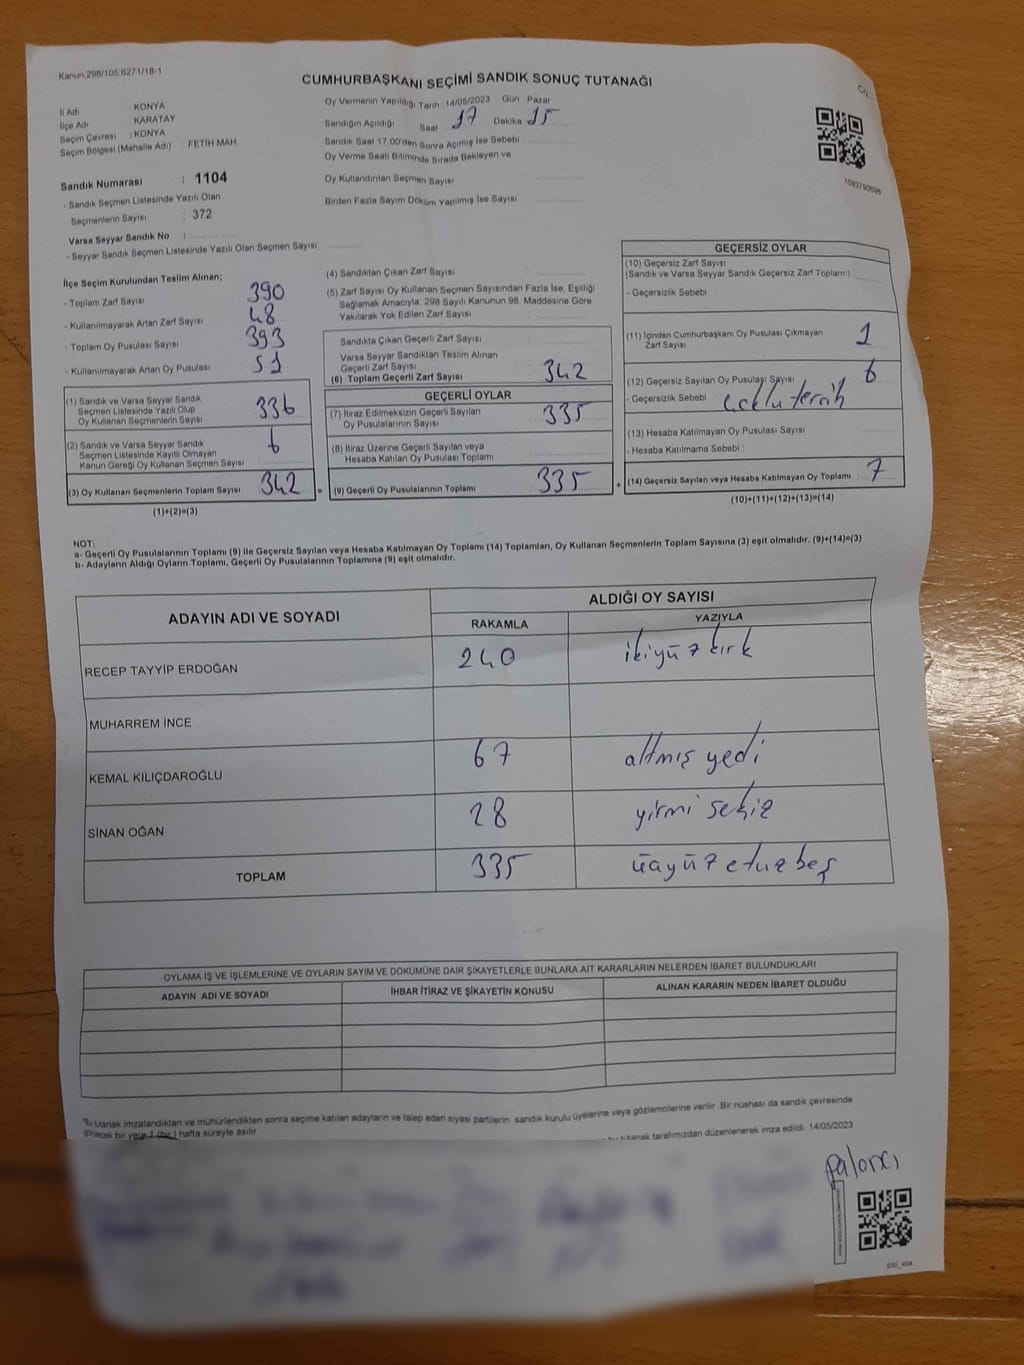 Kanun:298/105;6271/18-1
CUMHURBAŞKANI SEÇİMİ SANDIK SONUÇ TUTANAĞI
İl Adı KONYA
İlçe Adı KARATAY
Seçim Çevresi : KONYA
Seçim Bölgesi (Mahalle Adı) : FETİH MAH.
Oy Vermenin Yapıldığı Tarih :14/05/2023 Gün Pazar
Sandığın Açıldığı Saat 17 Dakika 15
Sandık Saat 17:00'den Sonra Açılmış İse Sebebi
Oy Verme Saati Bitiminde Sırada Bekleyen ve
Oy Kullandırılan Seçmen Sayısı
Birden Fazla Sayım Döküm Yapılmış İse Sayısı
1093790698
Sandık Numarası : 1104
- Sandık Seçmen Listesinde Yazılı Olan
Seçmenlerin Sayısı : 372
Varsa Seyyar Sandık No :
- Seyyar Sandık Seçmen Listesinde Yazılı Olan Seçmen Sayısı:
İlçe Seçim Kurulundan Teslim Alınan;
- Toplam Zarf Sayısı 390
- Kullanılmayarak Artan Zarf Sayısı 48
- Toplam Oy Pusulası Sayısı 393
- Kullanılmayarak Artan Oy Pusulası 51
(1) Sandık ve Varsa Seyyar Sandık
Seçmen Listesinde Yazılı Olup
Oy Kullanan Seçmenlerin Sayısı 336
(2) Sandık ve Varsa Seyyar Sandık
Seçmen Listesinde Kayıtlı Olmayan
Kanun Gereği Oy Kullanan Seçmen Sayısı 6
(3) Oy Kullanan Seçmenlerin Toplam Sayısı 342
(1)+(2)=(3)
(4) Sandıktan Çıkan Zarf Sayısı
(5) Zarf Sayısı Oy Kullanan Seçmen Sayısından Fazla İse, Eşitliği
Sağlamak Amacıyla; 298 Sayılı Kanunun 98. Maddesine Göre
Yakılarak Yok Edilen Zarf Sayısı
Sandıkta Çıkan Geçerli Zarf Sayısı
Varsa Seyyar Sandıktan Teslim Alınan
Geçerli Zarf Sayısı
(6) Toplam Geçerli Zarf Sayısı 342
GEÇERLİ OYLAR
(7) İtiraz Edilmeksizin Geçerli Sayılan
Oy Pusulalarının Sayısı 335
(8) İtiraz Üzerine Geçerli Sayılan veya
Hesaba Katılan Oy Pusulası Toplamı
= (9) Geçerli Oy Pusulalarının Toplamı 335 +
GEÇERSİZ OYLAR
(10) Geçersiz Zarf Sayısı
(Sandık ve Varsa Seyyar Sandık Geçersiz Zarf Toplamı)
- Geçersizlik Sebebi :
(11) İçinden Cumhurbaşkanı Oy Pusulası Çıkmayan
Zarf Sayısı 1
(12) Geçersiz Sayılan Oy Pusulası Sayısı 6
- Geçersizlik Sebebi çoklu tercih
(13) Hesaba Katılmayan Oy Pusulası Sayısı
- Hesaba Katılmama Sebebi :
(14) Geçersiz Sayılan veya Hesaba Katılmayan Oy Toplamı 7
(10)+(11)+(12)+(13)=(14)
NOT:
a- Geçerli Oy Pusulalarının Toplamı (9) ile Geçersiz Sayılan veya Hesaba Katılmayan Oy Toplamı (14) Toplamları, Oy Kullanan Seçmenlerin Toplam Sayısına (3) eşit olmalıdır. (9)+(14)=(3)
b- Adayların Aldığı Oyların Toplamı, Geçerli Oy Pusulalarının Toplamına (9) eşit olmalıdır.
ADAYIN ADI VE SOYADI ALDIĞI OY SAYISI
RAKAMLA YAZIYLA
RECEP TAYYİP ERDOĞAN 240 ikiyüz kırk
MUHARREM İNCE
KEMAL KILIÇDAROĞLU 67 altmış yedi
SİNAN OĞAN 28 yirmi sekiz
TOPLAM 335 üçyüz otuz beş
OYLAMA İŞ VE İŞLEMLERİNE VE OYLARIN SAYIM VE DÖKÜMÜNE DAİR ŞİKAYETLERLE BUNLARA AİT KARARLARIN NELERDEN İBARET BULUNDUKLARI
ADAYIN ADI VE SOYADI İHBAR İTİRAZ VE ŞİKAYETİN KONUSU ALINAN KARARIN NEDEN İBARET OLDUĞU
tutanak imzalandıktan ve mühürlendikten sonra seçime katılan adayların ve talep eden siyasi partilerin sandık kurulu üyelerine veya gözlemcilerine verilir. Bir nüshası da sandık çevresinde
görülecek bir yere 1 (bir) hafta süreyle asılır. bu tutanak tarafımızdan düzenlenerek imza edildi. 14/05/2023